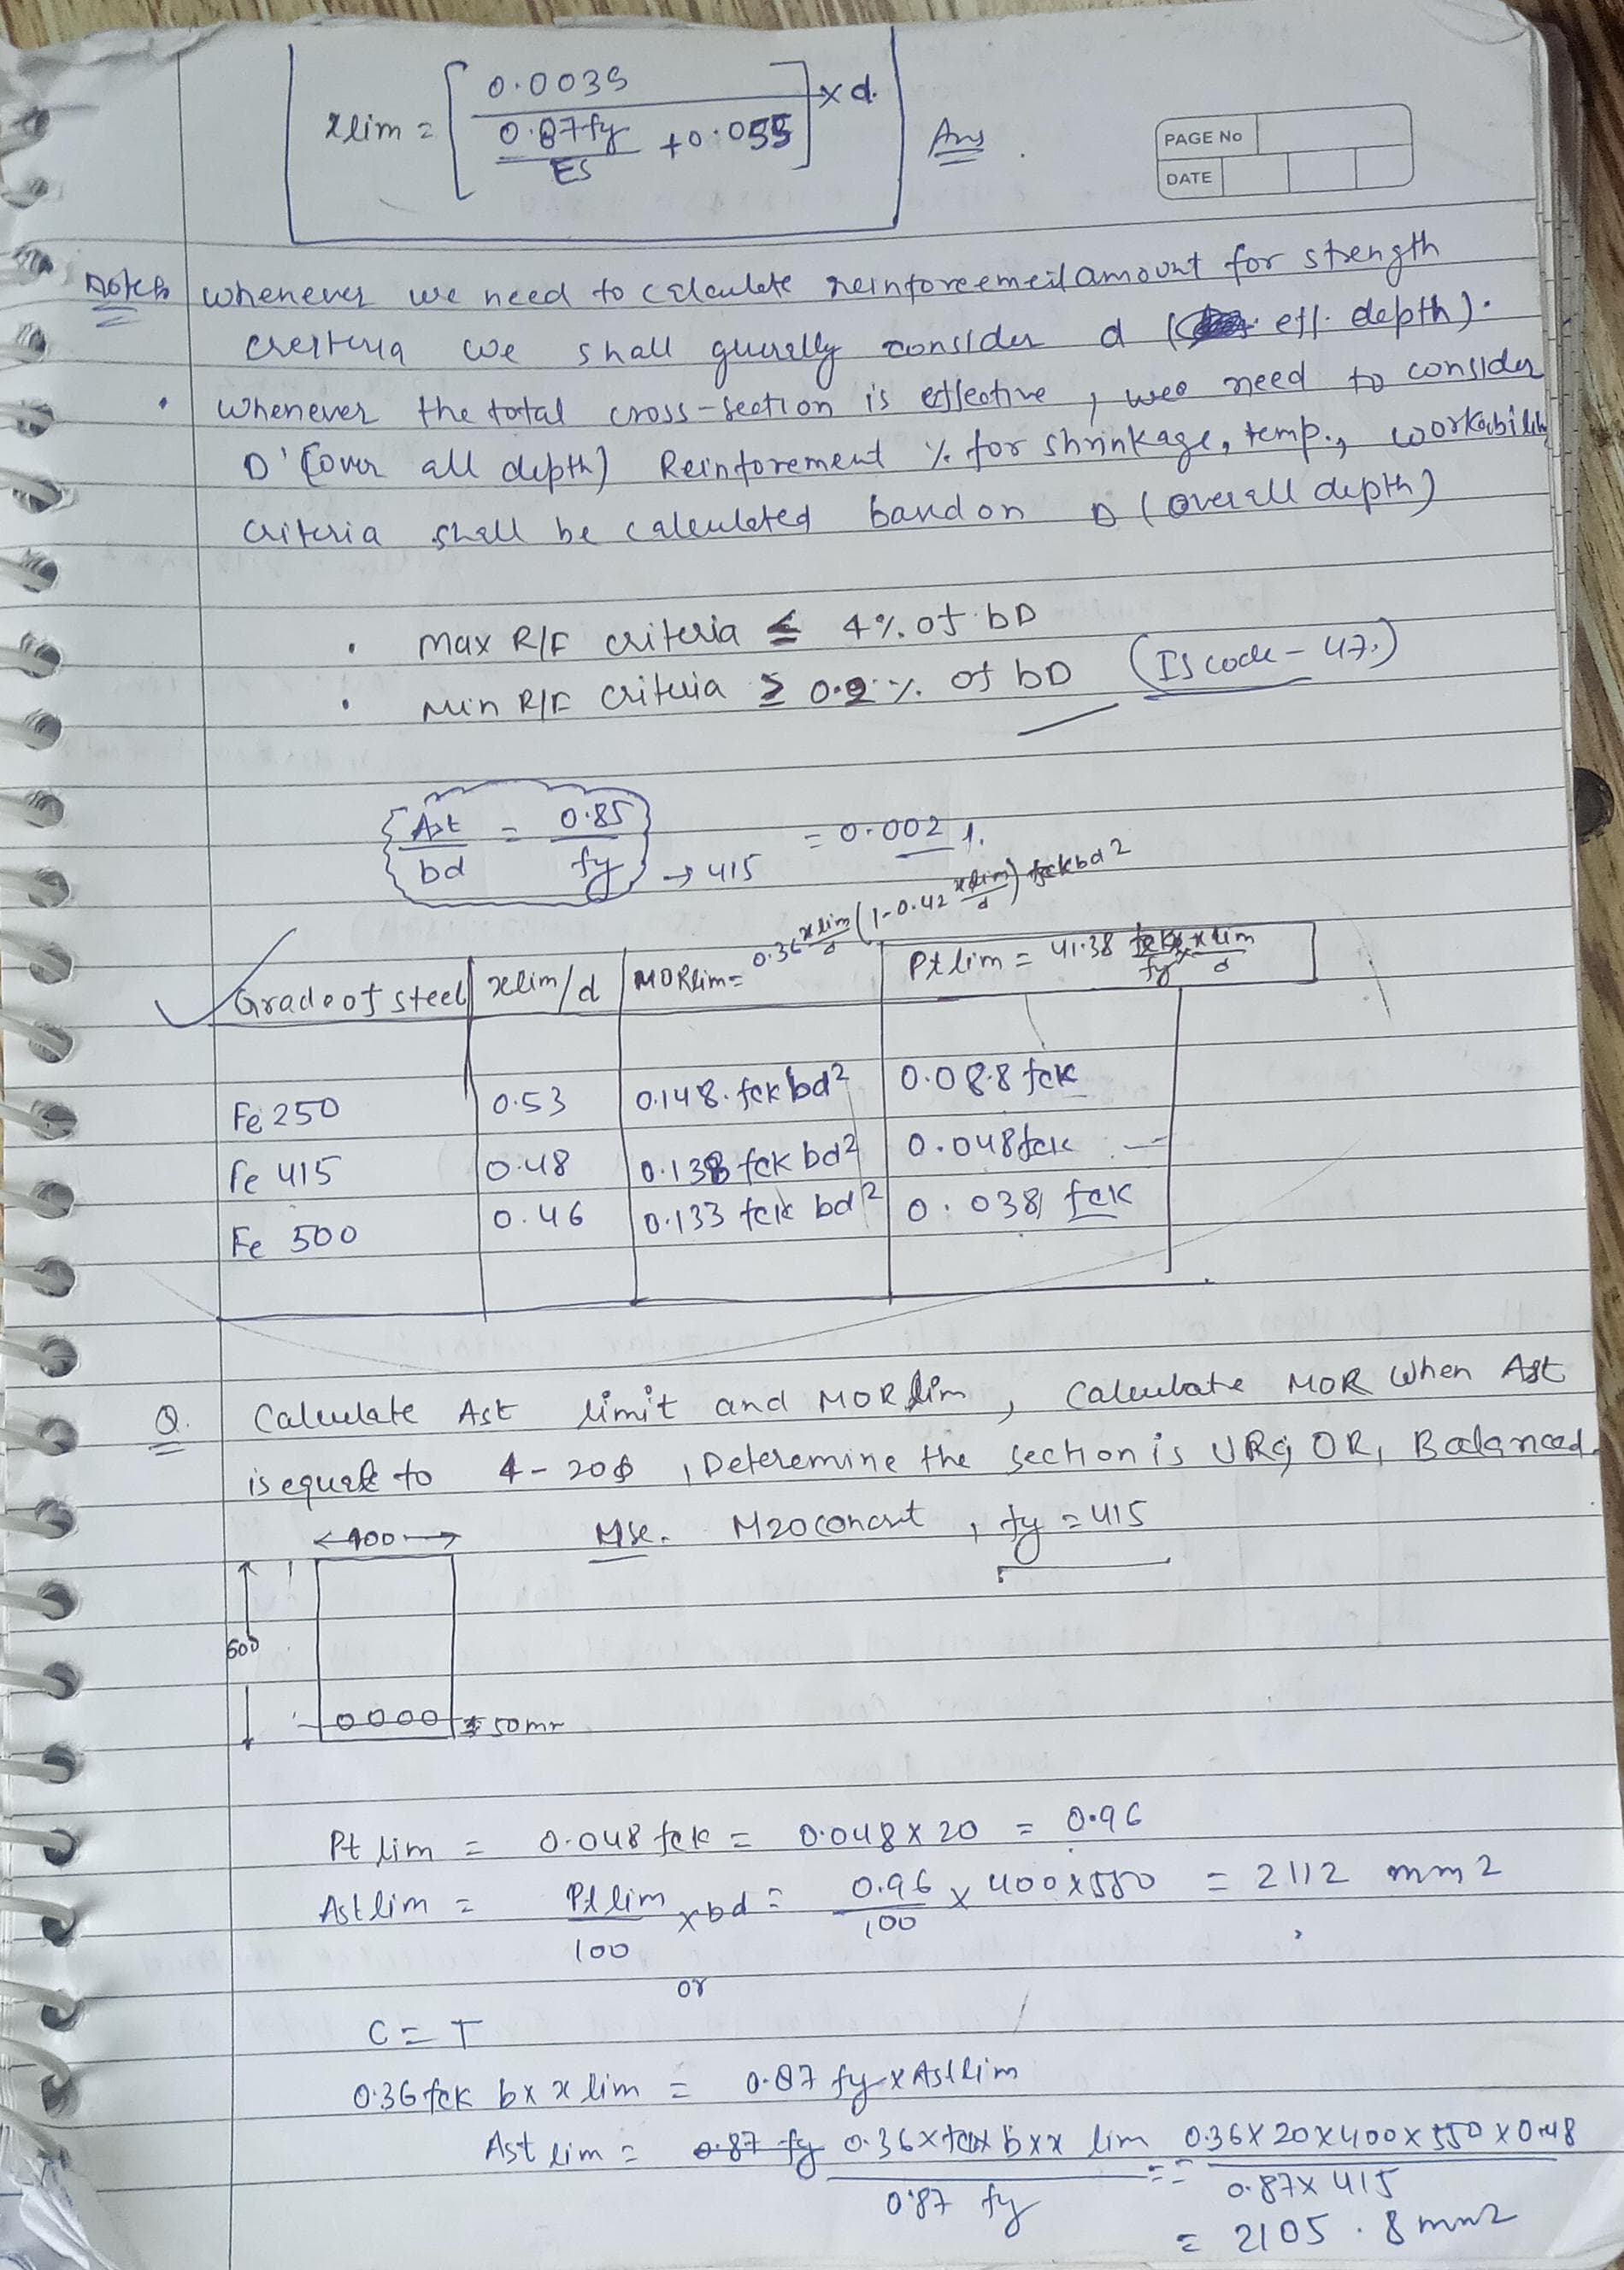 xlim = [ 0.0035 / (0.87fy/ES + 0.055) ] x d.
Ans.
PAGE No
DATE
Notes whenever we need to calculate reinforcement amount for strength
creiteria we shall generally consider d ( eff. depth).
• whenever the total cross-section is effective, wee need to consider
D' (over all depth) Reinforement % for shrinkage, temp., workability
criteria shall be calculated based on D (overall depth)
• Max R/F criteria ≤ 4%. of bD
• Min R/F criteria ≥ 0.2 %. of bD (IS code - 47.)
Ast/bd = 0.85/fy → 415 = 0.002 %.
Grade of steel | xlim/d | MORlim = 0.36 xlim/d (1-0.42 xlim/d) fckbd2 | Pt lim = 41.38 fck/fy x xlim/d
Fe 250 | 0.53 | 0.148. fck bd2 | 0.088 fck
Fe 415 | 0.48 | 0.138 fck bd2 | 0.048 fck
Fe 500 | 0.46 | 0.133 fck bd2 | 0.038 fck
Q. Calculate Ast limit and MOR lim, Calculate MOR when Ast
is equal to 4-20ϕ, Deteremine the section is URS, OR, Balanced.
Use. M20 concret, fy = 415
400
600
50mm
Pt lim = 0.048 fck = 0.048 x 20 = 0.96
Ast lim = Pt lim/100 x bd = 0.96/100 x 400 x 550 = 2112 mm2
or
C = T
0.36 fck b x x lim = 0.87 fy x Ast lim
Ast lim = 0.87 fy 0.36 x fck x b x x lim / 0.87 fy = 0.36 x 20 x 400 x 550 x 0.48 / 0.87 x 415
= 2105.8 mm2